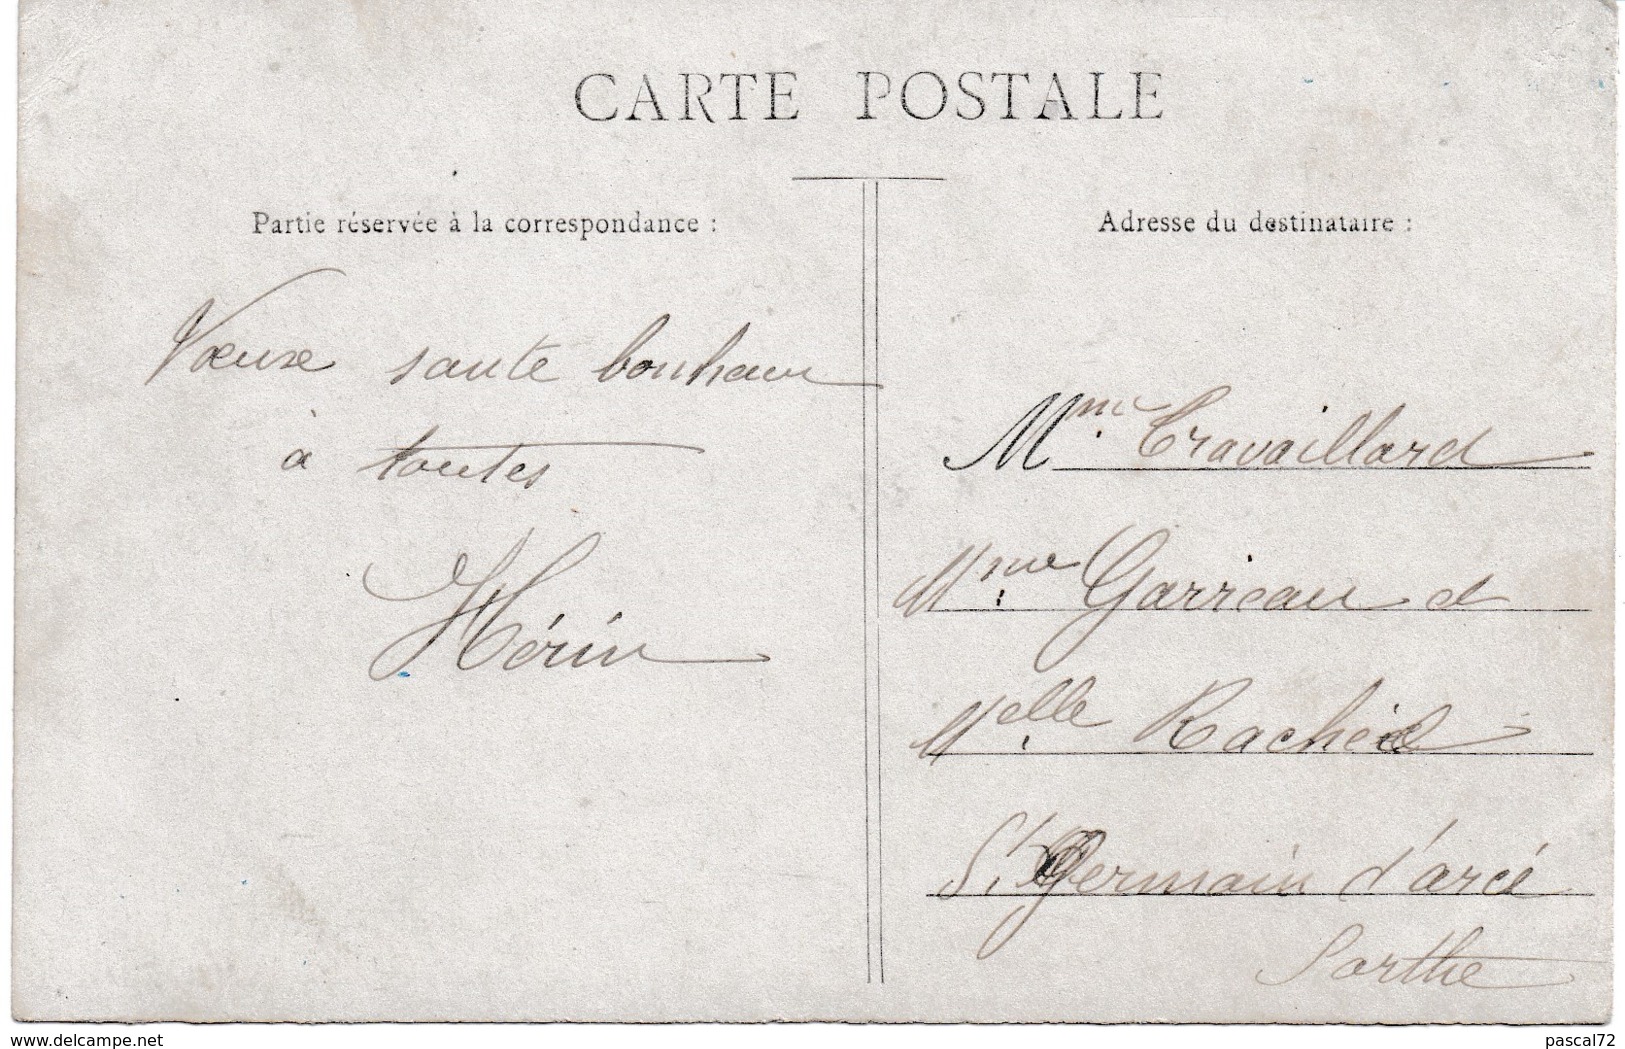 CARTE POSTALE
Partie réservée à la correspondance :
Voeuxe sante bonheur
à toutes
Hérin
Adresse du destinataire :
Mme. Travaillard
Mme. Garreau et
Melle Rachèl
St. Germain d'arcé
Sarthe
www.delcampe.net
pascal72